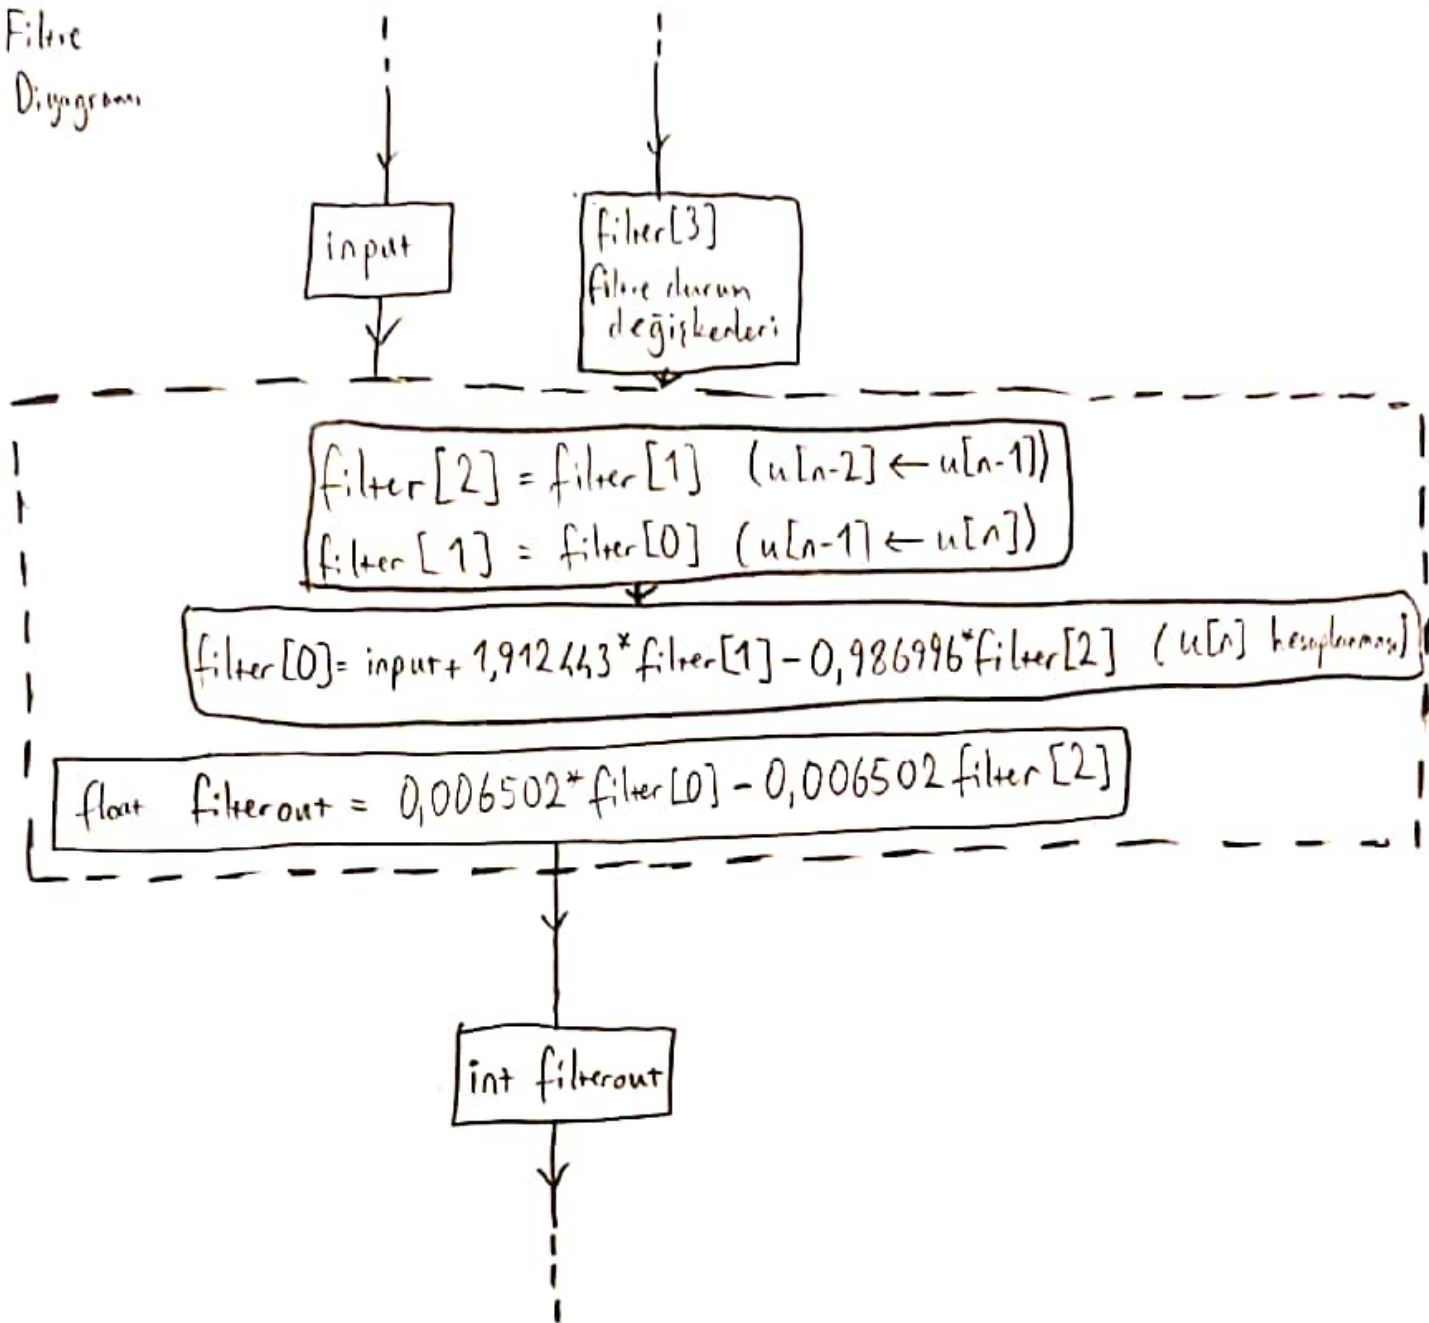 Filtre
Diyagramı
input
filter[3]
filtre durum
değişkenleri
filter[2] = filter[1] (u[n-2] ← u[n-1])
filter[1] = filter[0] (u[n-1] ← u[n])
filter[0] = input + 1,912443*filter[1] - 0,986996*filter[2] (u[n] hesaplanması)
float filterout = 0,006502*filter[0] - 0,006502 filter[2]
int filterout